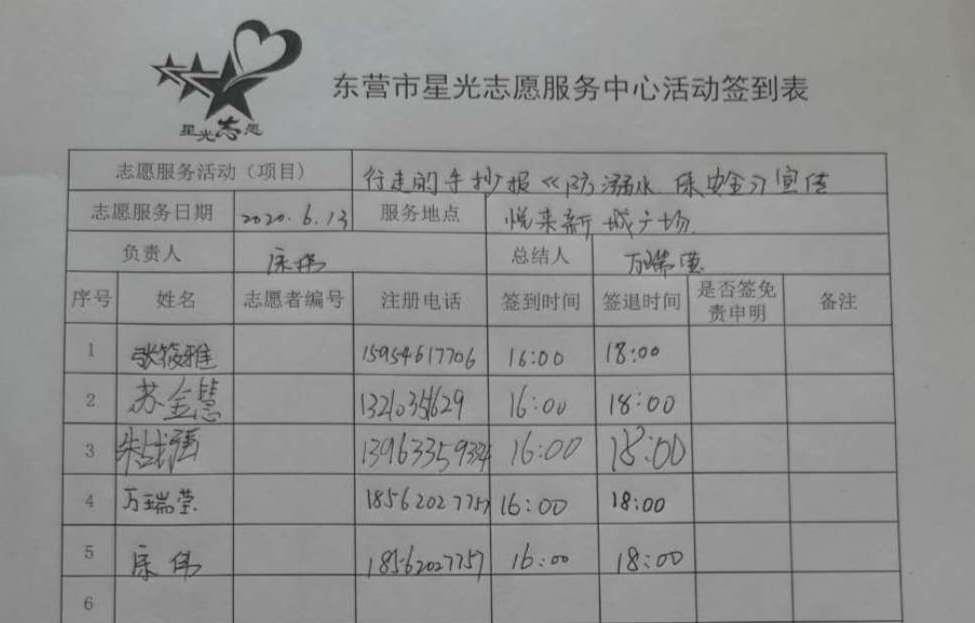 星光志愿
东营市星光志愿服务中心活动签到表
志愿服务活动（项目） 行走的手抄报《防溺水 保安全》宣传
志愿服务日期 2020.6.13 服务地点 悦来新城广场
负责人 宗伟 总结人 万瑞莹
序号 姓名 志愿者编号 注册电话 签到时间 签退时间 是否签免责申明 备注
1 张筱雅 15954617706 16:00 18:00
2 苏金慧 16:00 18:00
3 朱战强 16:00 18:00
4 万瑞莹 18562027757 16:00 18:00
5 宗伟 18562027757 16:00 18:00
6